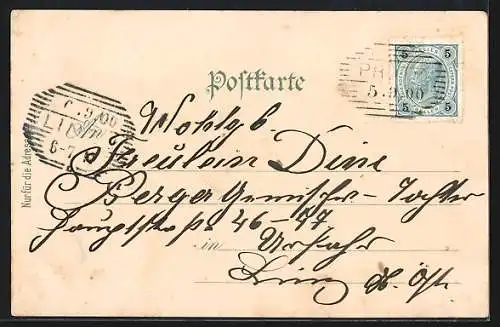 5 5
PR
5.9.00
5 5
Postkarte
6.9.00
LINZ
6-7
Nur für die Adresse
Wohlgb.
Fräulein Dine
Berger Gemischw.-Tochter
Hauptstraße 46-47
in Urfahr
Linz